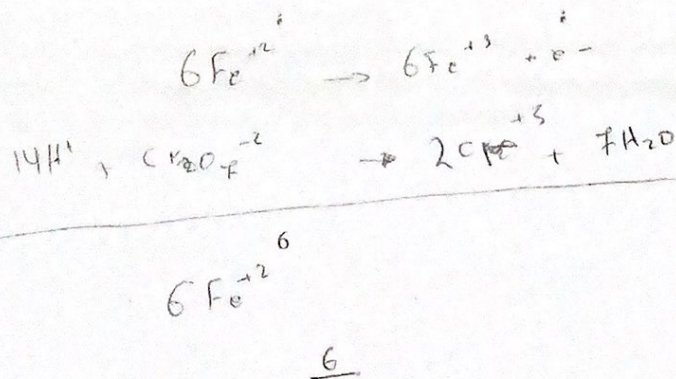 6Fe⁺² → 6Fe⁺³ + e⁻
14H⁺ + Cr₂O₇⁻² → 2Cr⁺³ + 7H₂O
6
6Fe⁺²
6